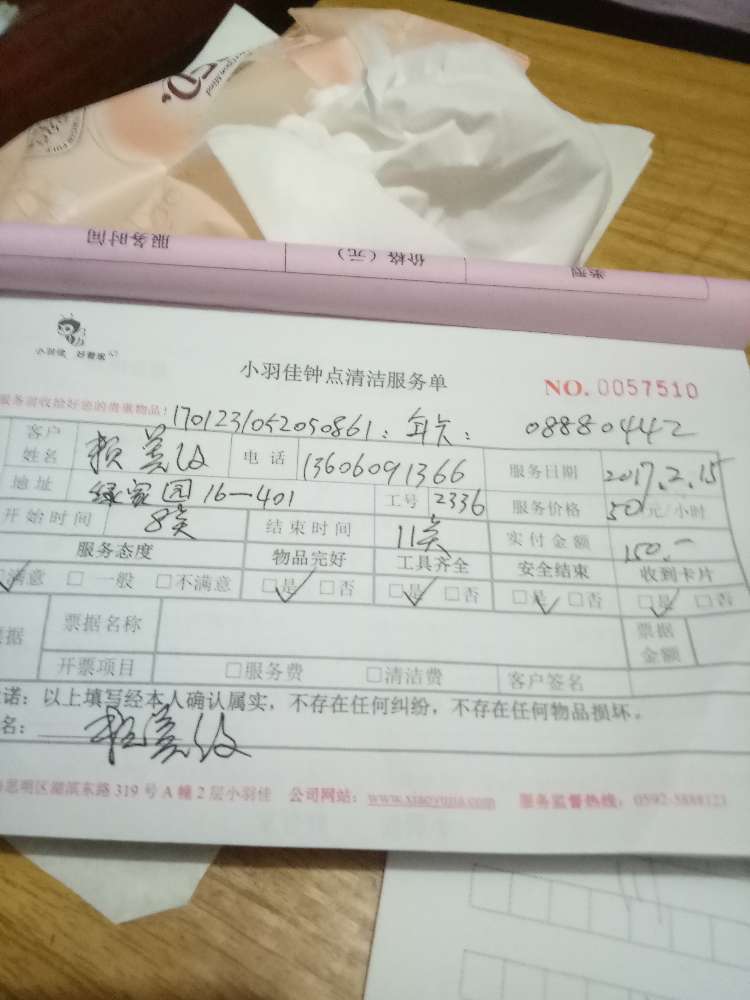 服务时间 价格（元） 类型
小羽佳 好管家
小羽佳钟点清洁服务单 NO. 0057510
服务前收给好您的贵重物品! 1701231052050861: 年卡: 08880442
客户姓名 赖 电话 13606091366 服务日期 2017.2.15
地址 绿家园16-401 工号 2336 服务价格 50元/小时
开始时间 8点 结束时间 11点 实付金额 150.-
服务态度 物品完好 工具齐全 安全结束 收到卡片
满意 □ 一般 □不满意 □是 □否 □是 □否 □是 □否 □是 □否
据 票据名称 票据金额
开票项目 □服务费 □清洁费 客户签名
诺：以上填写经本人确认属实，不存在任何纠纷，不存在任何物品损坏。
名：
思明区湖滨东路 319 号 A 幢 2 层小羽佳 公司网站：www.xiaoyujia.com 服务监督热线：0592-5888123